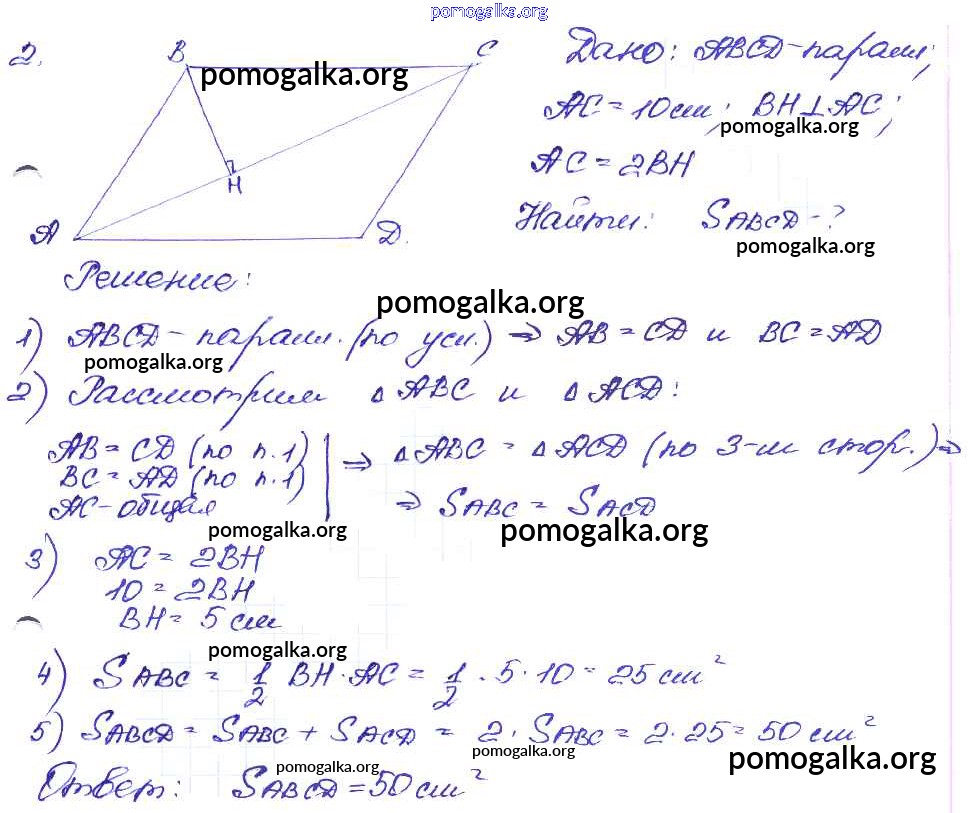 pomogalka.org
2.
B
C
pomogalka.org
H
A
D.
Дано: ABCD-парал.;
AC = 10 см; BH⊥AC;
pomogalka.org
AC = 2BH
Найти: SABCD - ?
pomogalka.org
Решение:
pomogalka.org
1) ABCD - парал. (по усл.) ⇒ AB = CD и BC = AD
pomogalka.org
2) Рассмотрим △ABC и △ACD:
AB = CD (по п.1)
BC = AD (по п.1)
AC - общая
⇒ △ABC = △ACD (по 3-м стор.) ⇒
⇒ SABC = SACD
pomogalka.org
pomogalka.org
3) AC = 2BH
10 = 2BH
BH = 5 см
pomogalka.org
4) SABC = 1/2 BH·AC = 1/2 · 5 · 10 = 25 см²
5) SABCD = SABC + SACD = 2 · SABC = 2 · 25 = 50 см²
pomogalka.org
pomogalka.org
pomogalka.org
Ответ: SABCD = 50 см²